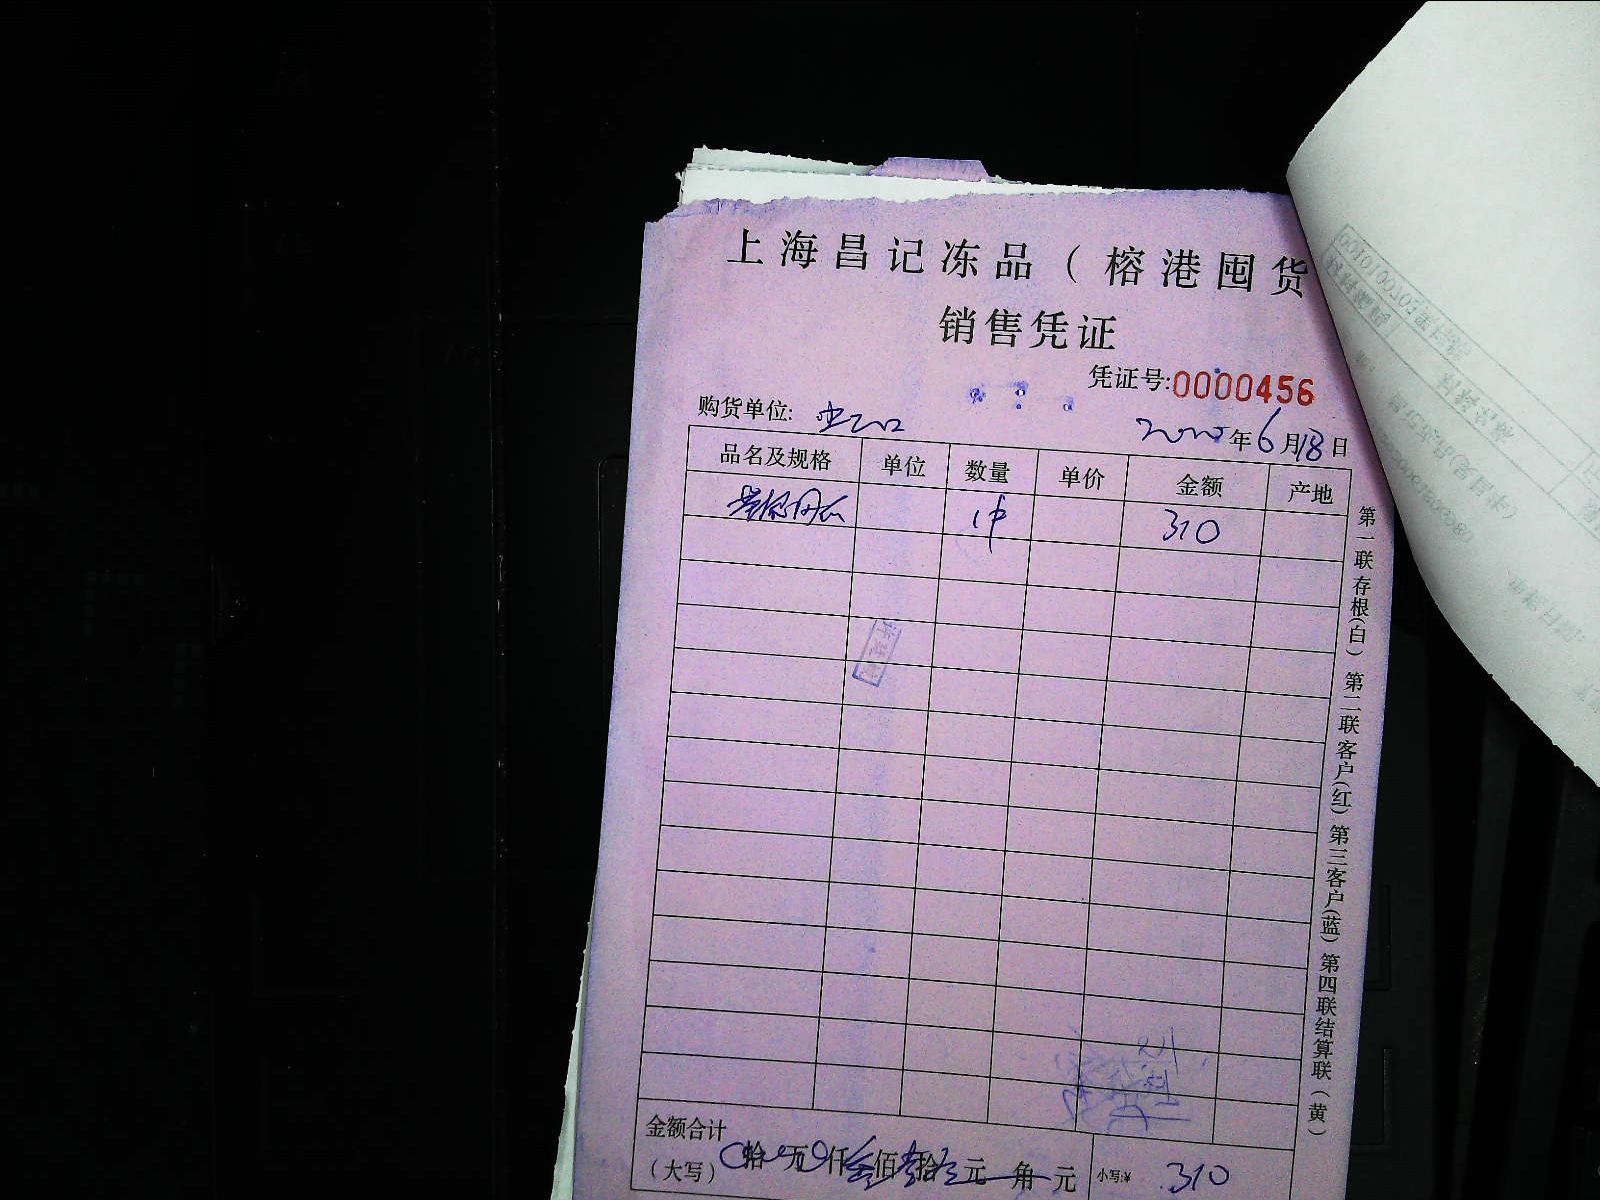 上海昌记冻品（榕港囤货
销售凭证
凭证号:0000456
购货单位:
2020年6月18日
品名及规格 单位 数量 单价 金额 产地
1件 310
第一联存根(白) 第二联客户(红) 第三客户(蓝) 第四联结算联(黄)
金额合计
(大写) 0拾0万0仟叁佰壹拾元角元 小写:¥ 310